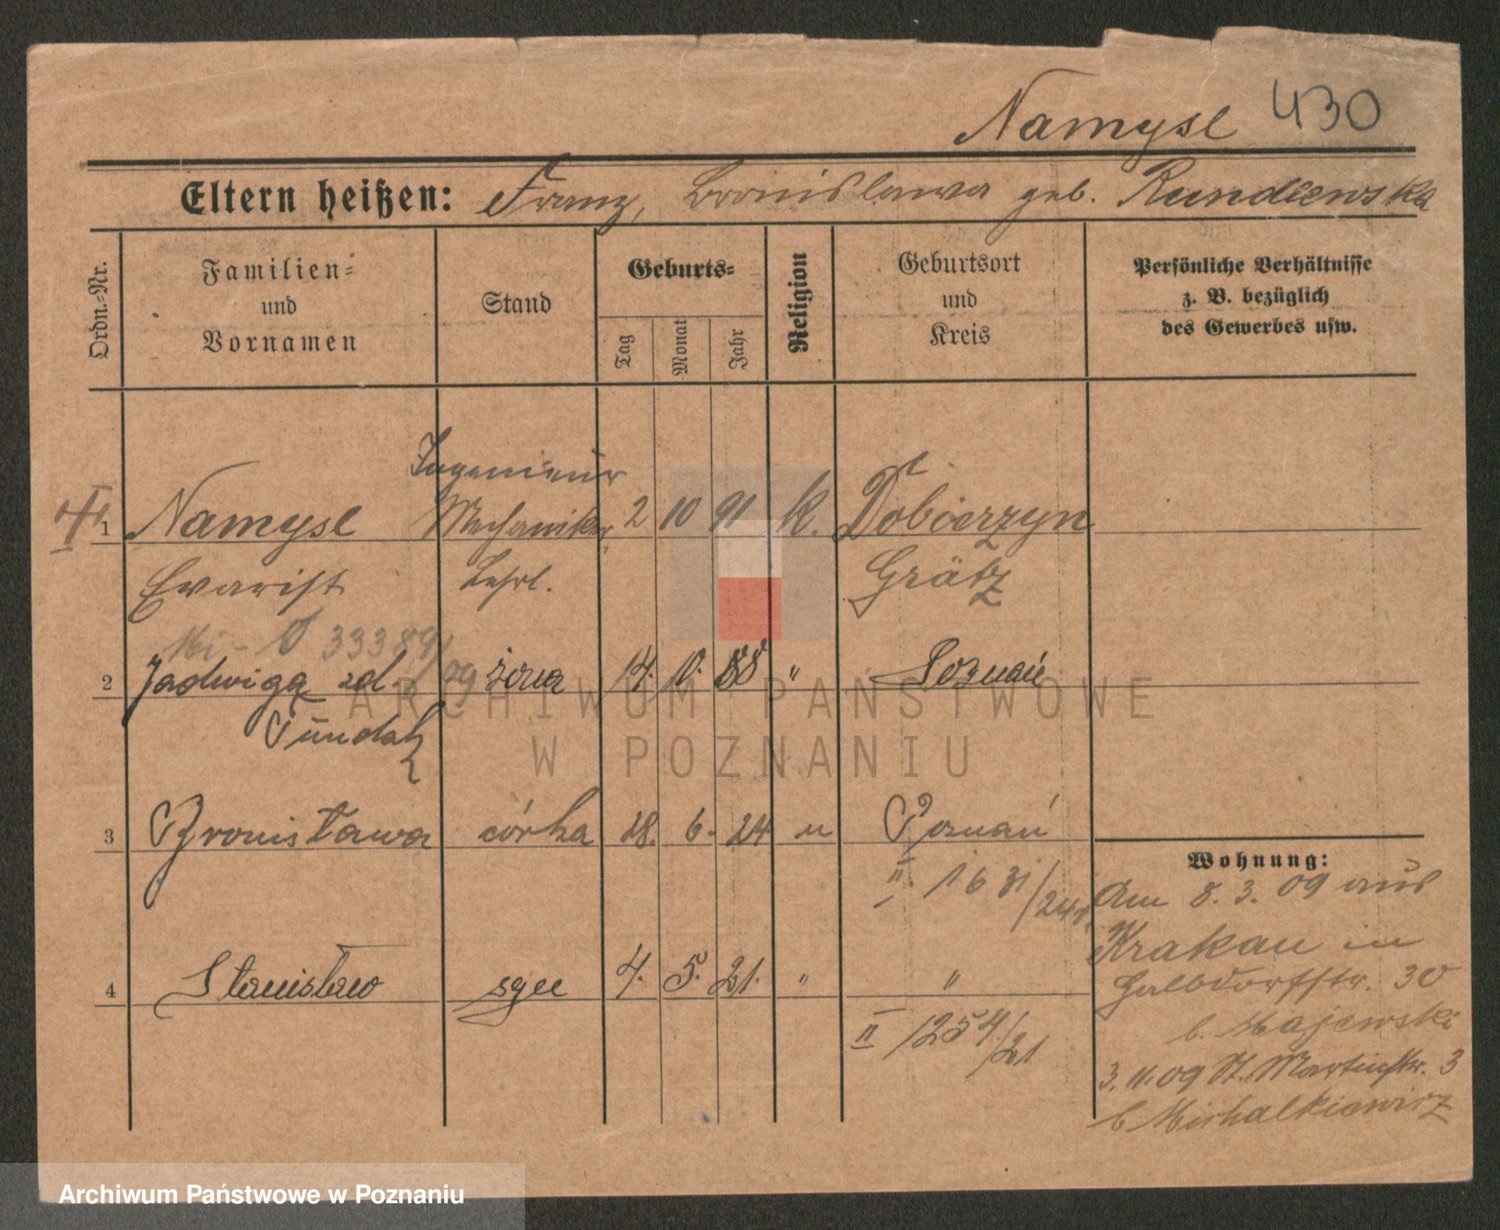 Namysl 430
Eltern heißen: Franz, Bronislawa geb. Rundlewska
Ordn.-Nr.
Familien-
und
Vornamen
Stand
Geburts-
Tag
Monat
Jahr
Religion
Geburtsort
und
Kreis
Persönliche Verhältnisse
z. B. bezüglich
des Gewerbes usw.
Ingenieur
1 Namysl Mechaniker 2 10 91 k. Dobierzyn
Evarist Lehrl. Grätz
333891
2 Jadwiga zd. żona 14. 10. 88 " Poznań
3 Bronisława córka 28. 6. 24 " Poznań
II. 1631/24
4 Stanisław syn 4. 5. 21. " "
II 1254/21
Wohnung:
Am 8. 3. 09 aus
Krakau in
Halbdorfstr. 30
b. Majewski
3. 11. 09 St. Martinstr. 3
b Michalkiewicz
ARCHIWUM PAŃSTWOWE
W POZNANIU
Archiwum Państwowe w Poznaniu